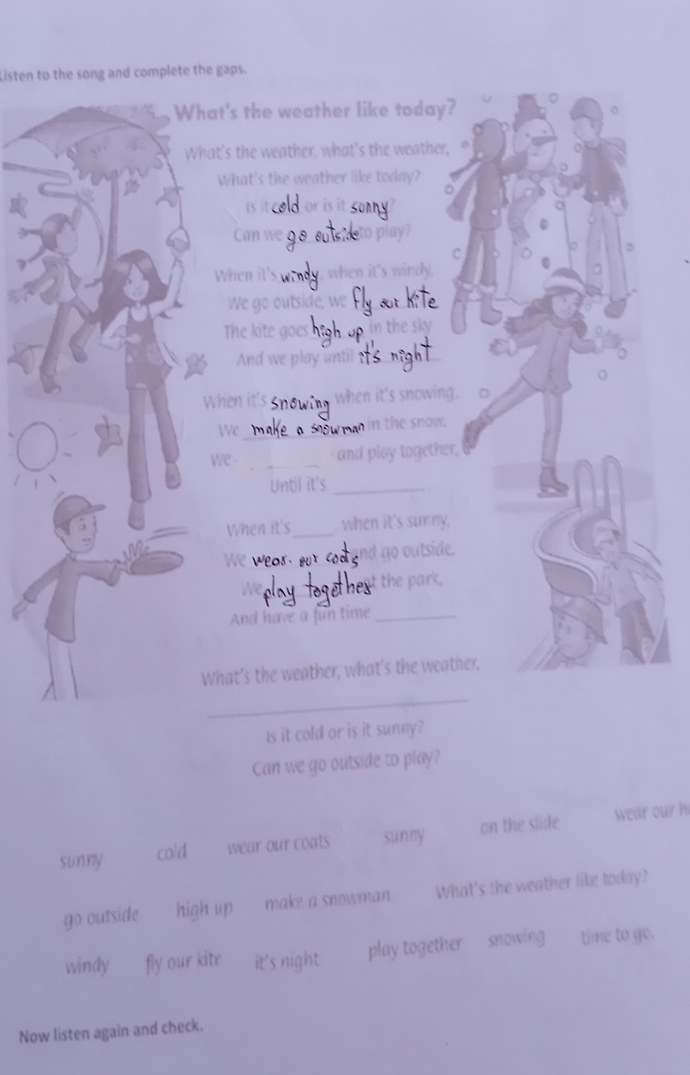 Listen to the song and complete the gaps.
What's the weather like today?
What's the weather, what's the weather,
What's the weather like today?
Is it cold or is it sunny?
Can we go outside to play?
When it's windy, when it's windy,
We go outside, we fly our kite
The kite goes high up in the sky
And we play until it's night
When it's snowing when it's snowing,
We make a snowman in the snow.
We and play together,
Until it's ________
When it's ____ when it's sunny,
We wear our coats and go outside.
We play together at the park,
And have a fun time ________
What's the weather, what's the weather,
Is it cold or is it sunny?
Can we go outside to play?
sunny cold wear our coats sunny on the slide wear our
go outside high up make a snowman What's the weather like today?
windy fly our kite it's night play together snowing time to go.
Now listen again and check.